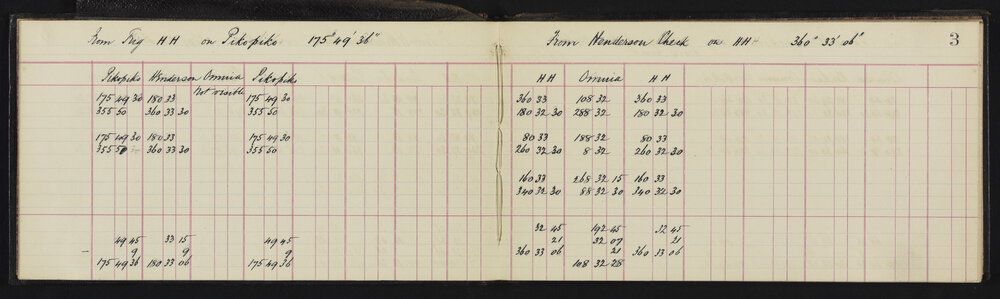 from Trig HH on Pikopiko 175° 49' 36"
Pikopiko Henderson Omnia Pikopiko
Not visible
175 49 30 180 33 175 49 30
355 50 360 33 30 355 50
175 49 30 180 33 175 49 30
355 50 360 33 30 355 50
49 45 33 15 49 45
9 9 9
175 49 36 180 33 06 175 49 36
From Henderson Check on HH 360° 33' 06"
3
HH Omnia HH
360 33 108 32 360 33
180 32 30 288 32 180 32 30
80 33 188 32 80 33
260 32 30 8 32 260 32 30
160 33 268 32 15 160 33
340 32 30 88 32 30 340 32 30
32 45 192 45 32 45
21 32 07 21
360 33 06 21 360 33 06
108 32 28